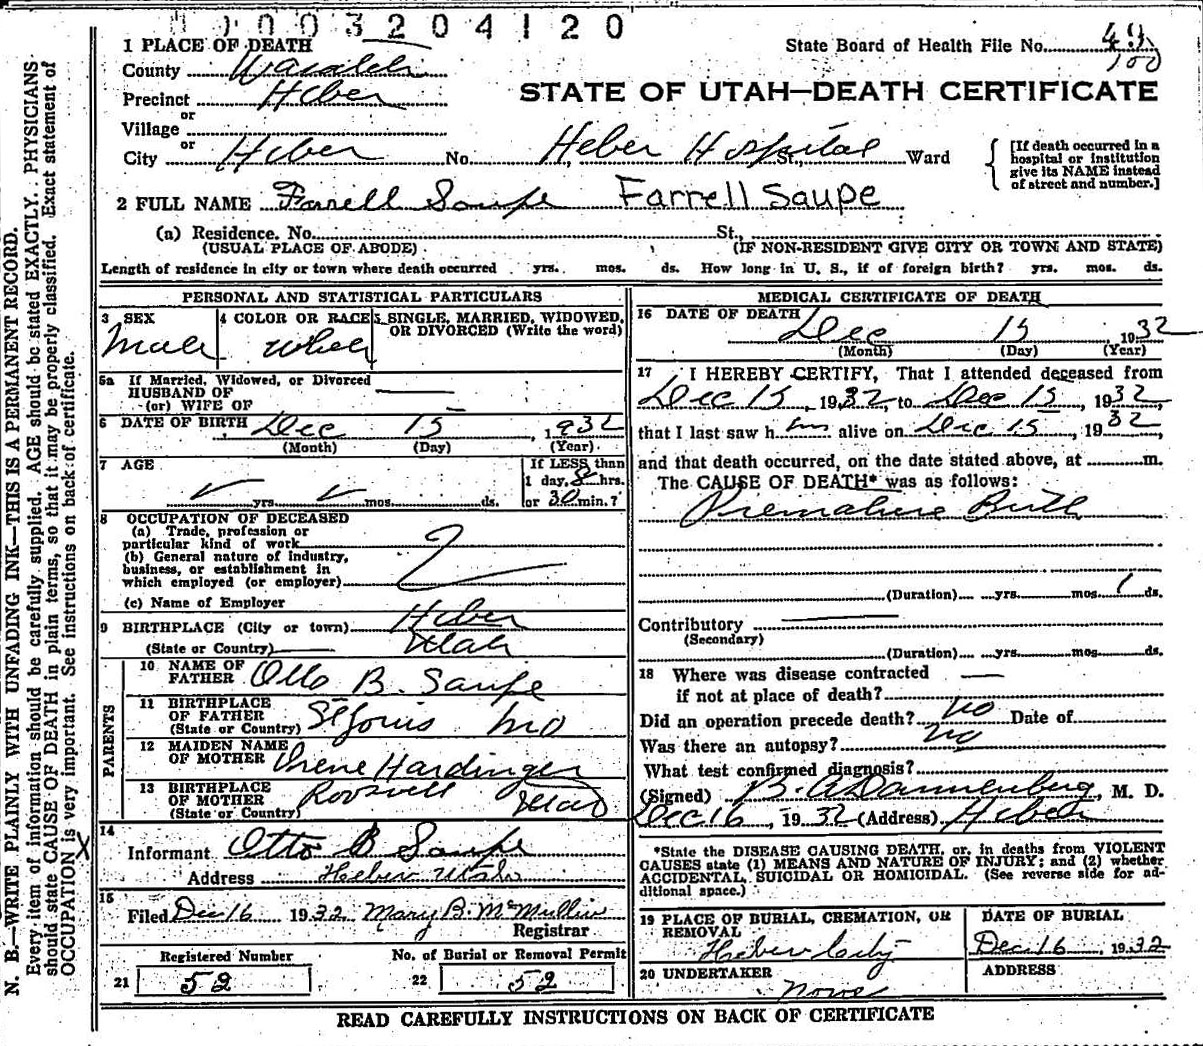 0 0 0 3 2 0 4 1 2 0
1 PLACE OF DEATH
State Board of Health File No. 49
100
County Wasatch
Precinct Heber
STATE OF UTAH—DEATH CERTIFICATE
or
Village
or
City Heber No. Heber Hospital St., Ward
[If death occurred in a hospital or institution give its NAME instead of street and number.]
2 FULL NAME Farrell Saupe Farrell Saupe
(a) Residence. No. St.,
(USUAL PLACE OF ABODE) (IF NON-RESIDENT GIVE CITY OR TOWN AND STATE)
Length of residence in city or town where death occurred yrs. mos. ds. How long in U. S., if of foreign birth? yrs. mos. ds.
PERSONAL AND STATISTICAL PARTICULARS
3 SEX 4 COLOR OR RACE 5 SINGLE, MARRIED, WIDOWED, OR DIVORCED (Write the word)
Male White
5a If Married, Widowed, or Divorced
HUSBAND OF
(or) WIFE OF
6 DATE OF BIRTH Dec 15, 1932
(Month) (Day) (Year)
7 AGE
If LESS than
1 day, 8 hrs.
yrs. mos. ds. or 30 min.?
8 OCCUPATION OF DECEASED
(a) Trade, profession or
particular kind of work
(b) General nature of industry,
business, or establishment in
which employed (or employer)
(c) Name of Employer
9 BIRTHPLACE (City or town) Heber
(State or Country) Utah
PARENTS
10 NAME OF
FATHER Otto B. Saupe
11 BIRTHPLACE
OF FATHER St Louis Mo
(State or Country)
12 MAIDEN NAME
OF MOTHER Irene Hardinger
13 BIRTHPLACE
OF MOTHER Roosvelt Utah
(State or Country)
14
Informant Otto B Saupe
Address Heber Utah
15
Filed Dec 16 1932 Mary B. McMullin
Registrar
Registered Number No. of Burial or Removal Permit
21 52 22 52
MEDICAL CERTIFICATE OF DEATH
16 DATE OF DEATH
Dec 15 1932
(Month) (Day) (Year)
17 I HEREBY CERTIFY, That I attended deceased from
Dec 15, 1932, to Dec 15, 1932,
that I last saw him alive on Dec 15, 1932,
and that death occurred, on the date stated above, at m.
The CAUSE OF DEATH* was as follows:
Premature Birth
(Duration) yrs. mos. 1 ds.
Contributory
(Secondary)
(Duration) yrs. mos. ds.
18 Where was disease contracted
if not at place of death?
Did an operation precede death? No Date of
Was there an autopsy? No
What test confirmed diagnosis?
(Signed) B. A Dannenberg, M. D.
Dec 16, 1932 (Address) Heber
*State the DISEASE CAUSING DEATH, or, in deaths from VIOLENT
CAUSES state (1) MEANS AND NATURE OF INJURY; and (2) whether
ACCIDENTAL, SUICIDAL OR HOMICIDAL. (See reverse side for ad-
ditional space.)
19 PLACE OF BURIAL, CREMATION, OR
REMOVAL
Heber City
DATE OF BURIAL
Dec 16, 1932
20 UNDERTAKER
None
ADDRESS
READ CAREFULLY INSTRUCTIONS ON BACK OF CERTIFICATE
N. B.—WRITE PLAINLY WITH UNFADING INK—THIS IS A PERMANENT RECORD.
Every item of information should be carefully supplied. AGE should be stated EXACTLY. PHYSICIANS
should state CAUSE OF DEATH in plain terms, so that it may be properly classified. Exact statement of
OCCUPATION is very important. See instructions on back of certificate.
X